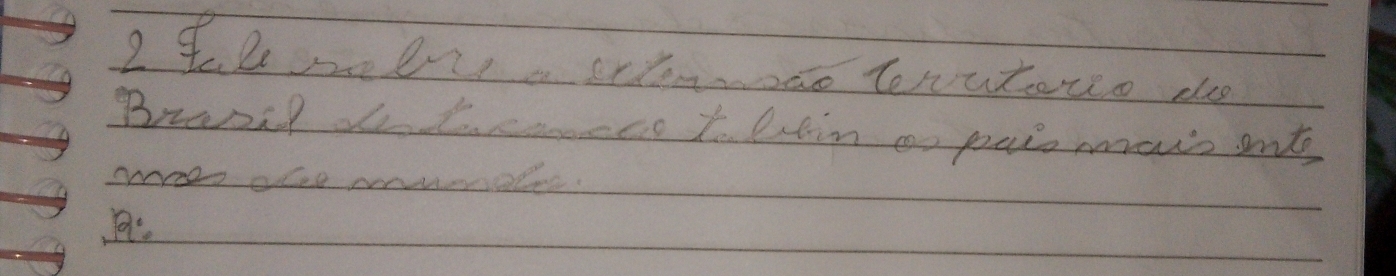 2 Fale sobre a extensão territorio do
Brasil destacando também os pais mais exten
sos do mundo.
R: